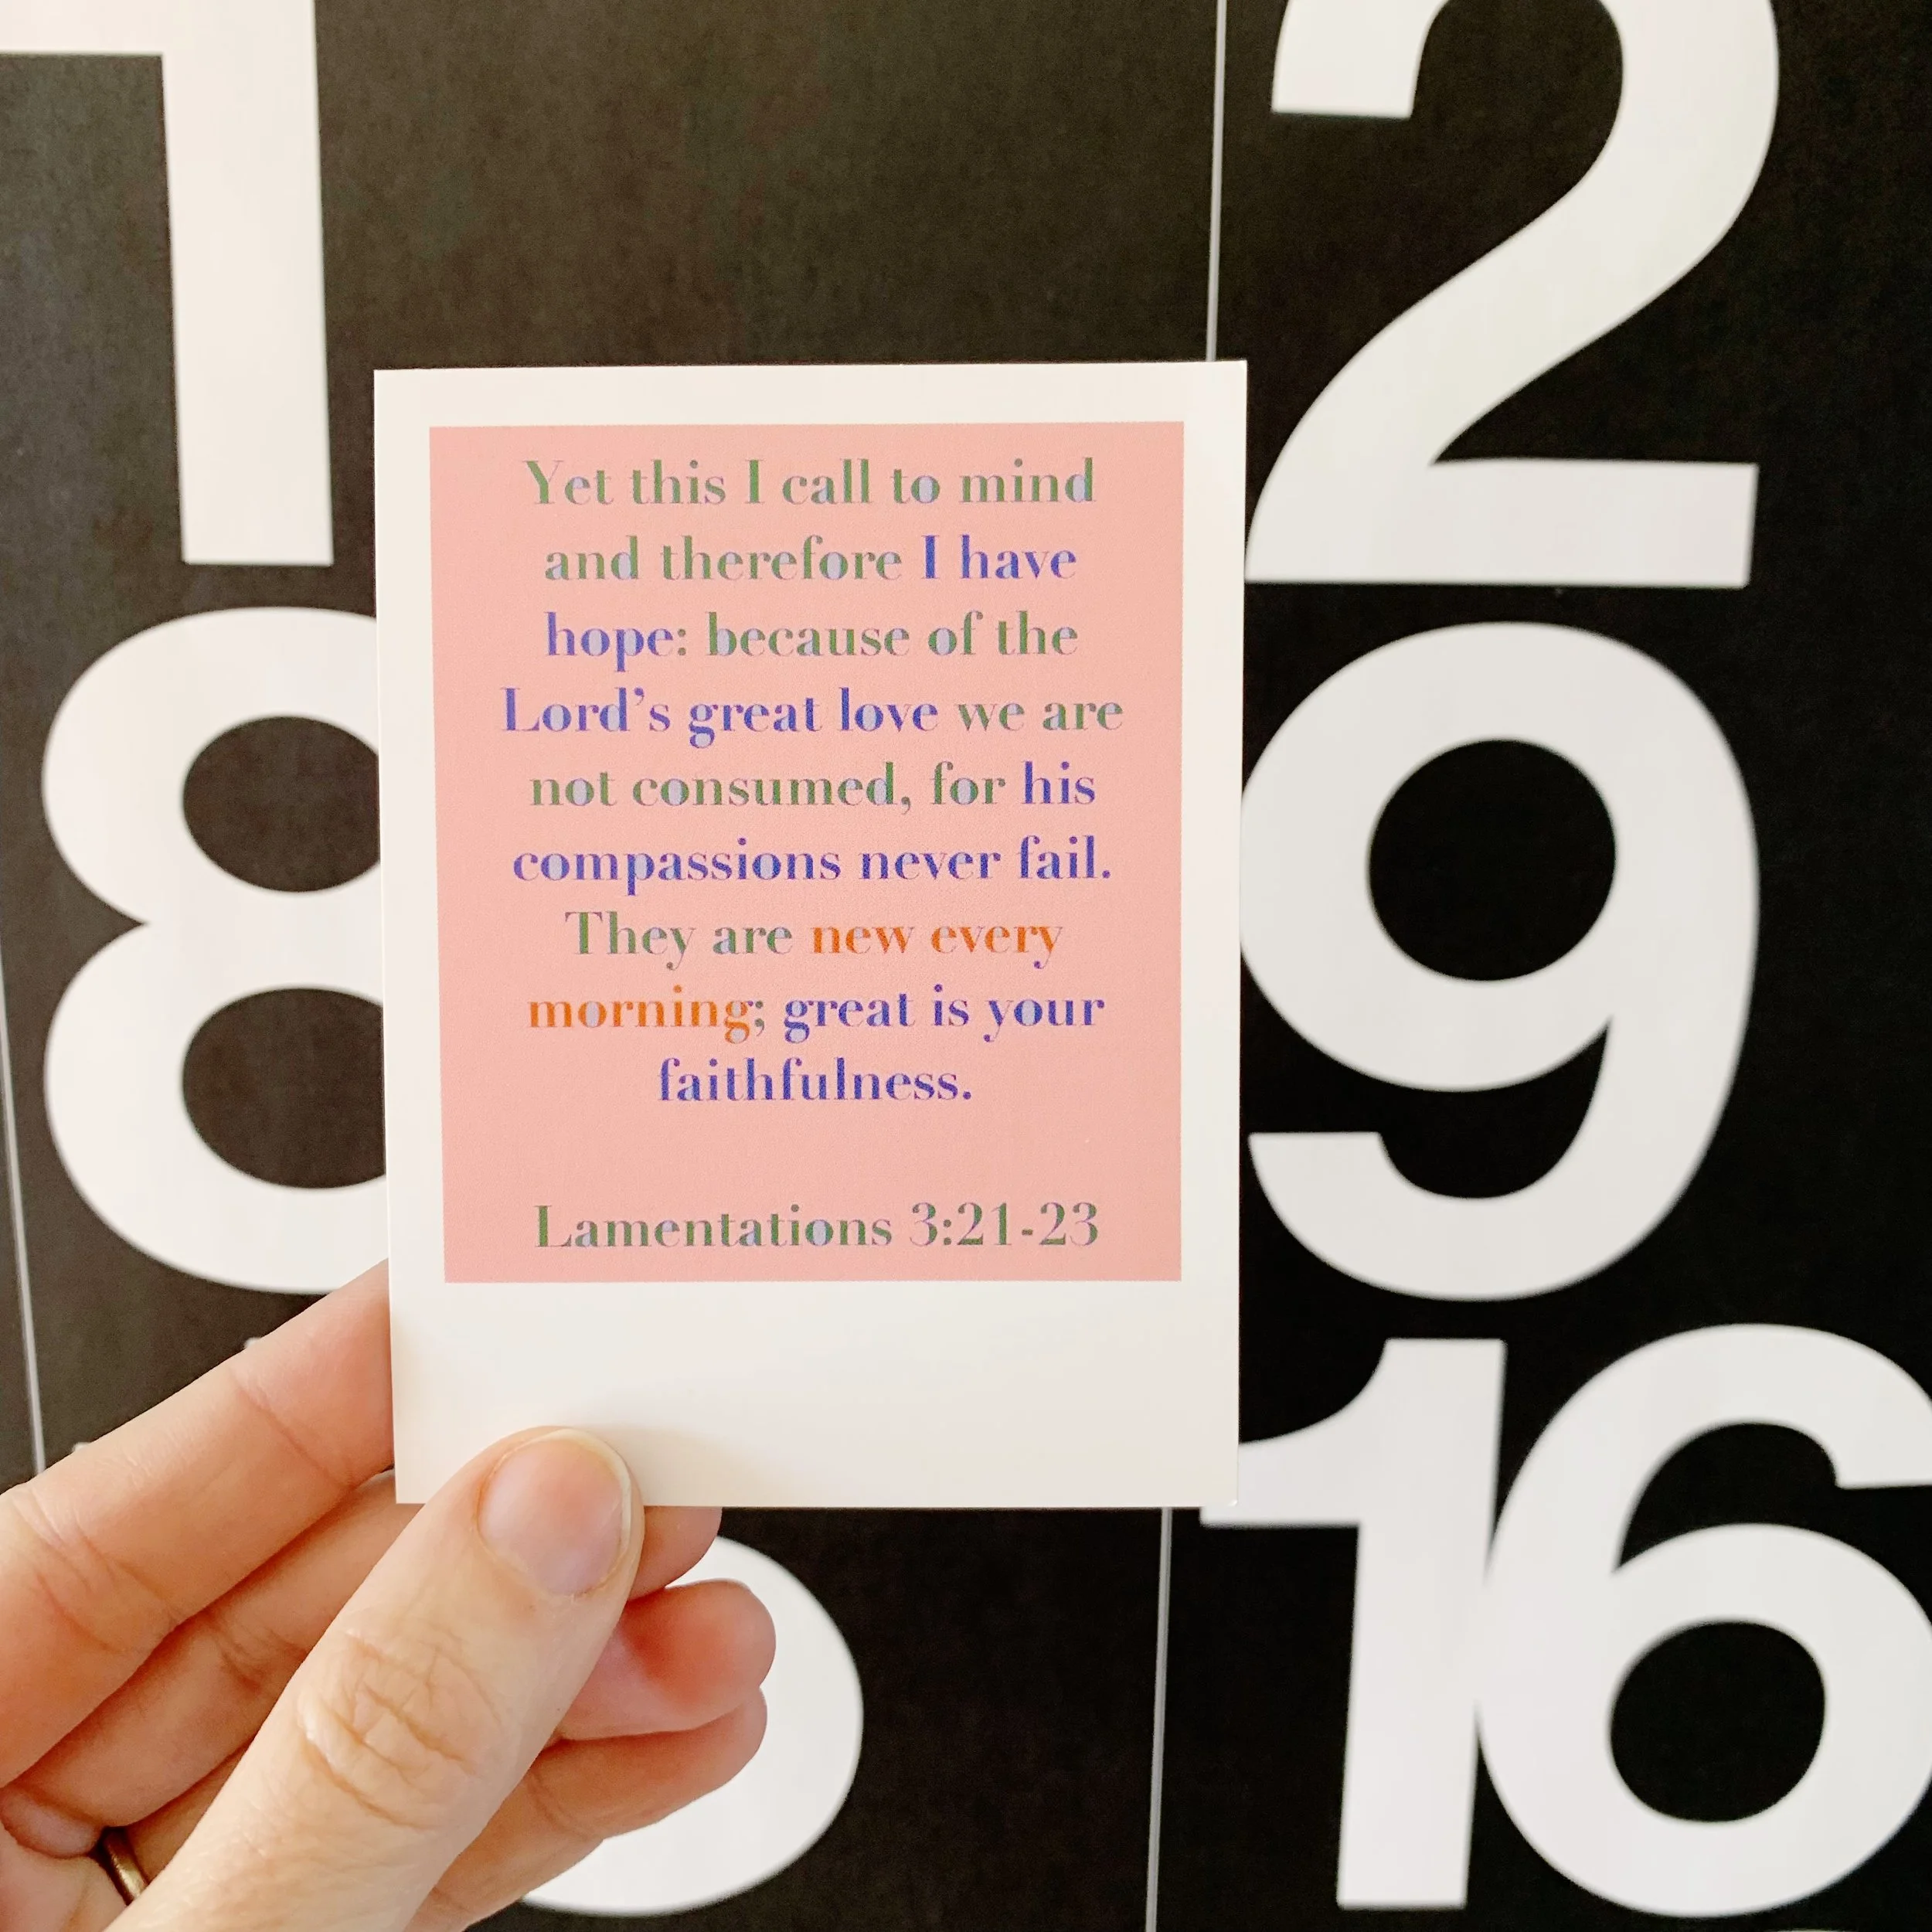 1
2
Yet this I call to mind
and therefore I have
hope: because of the
Lord’s great love we are
not consumed, for his
compassions never fail.
They are new every
morning; great is your
faithfulness.
Lamentations 3:21-23
8
9
16